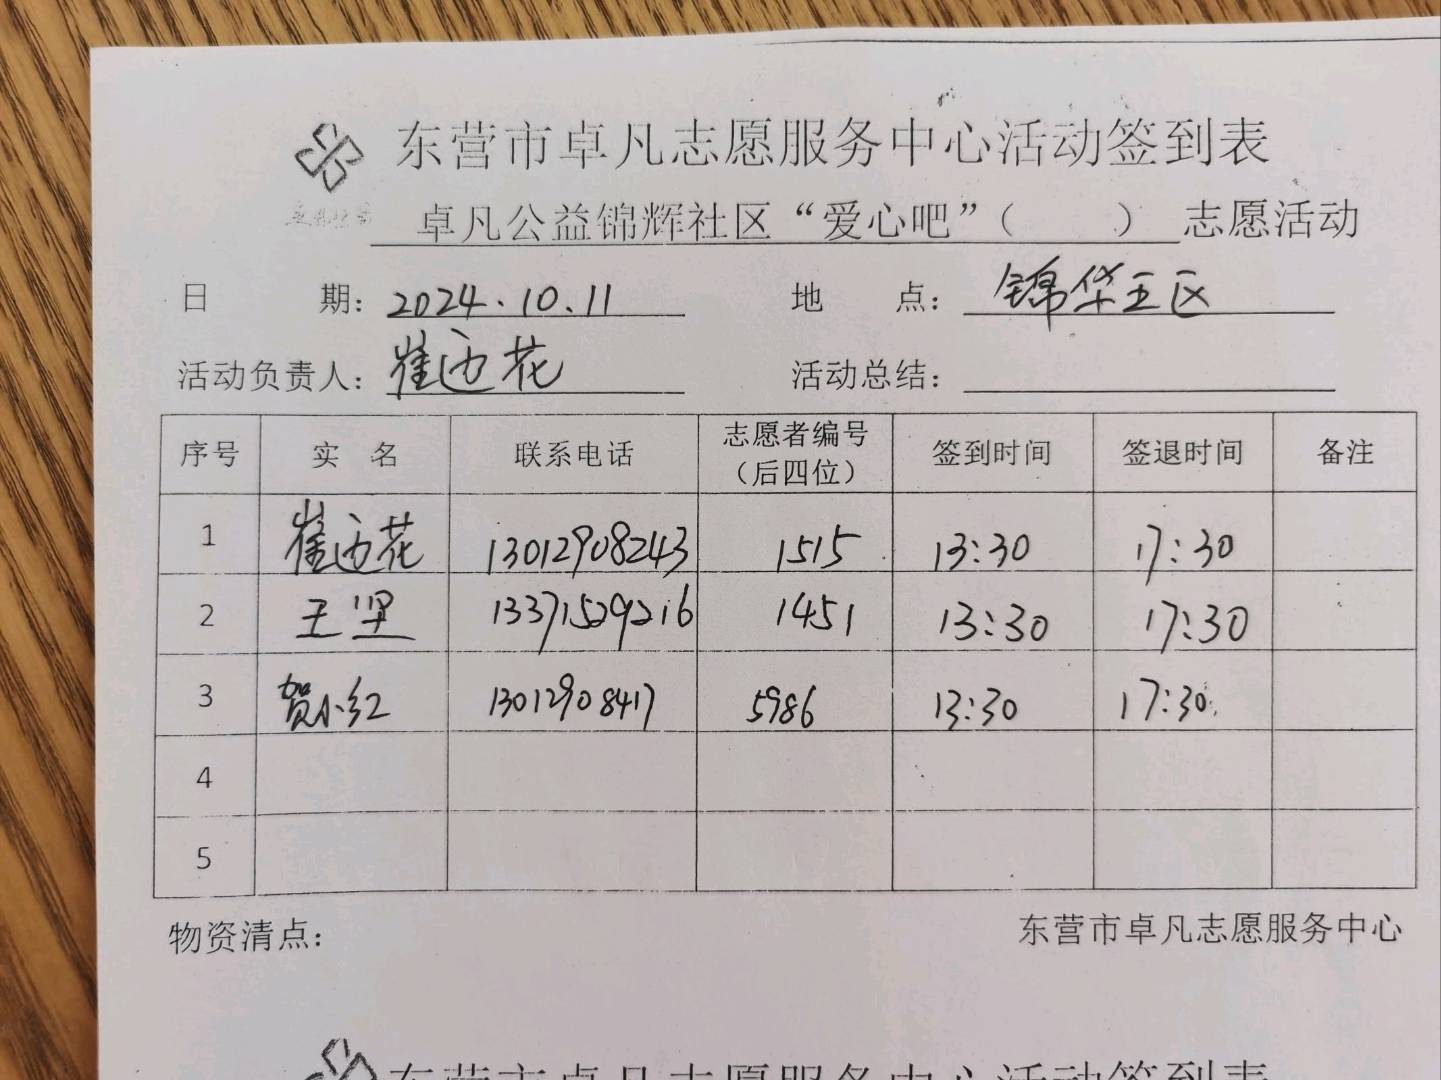 东营市卓凡志愿服务中心活动签到表
卓凡公益锦辉社区“爱心吧”（ ）志愿活动
日 期：2024.10.11 地 点：锦华五区
活动负责人：崔迎花 活动总结：
序号 实 名 联系电话 志愿者编号（后四位） 签到时间 签退时间 备注
1 崔迎花 13012908243 1515 13:30 17:30
2 王坚 13371529216 1451 13:30 17:30
3 贺小红 13012908417 5986 13:30 17:30
4
5
物资清点： 东营市卓凡志愿服务中心
东营市卓凡志愿服务中心活动签到表